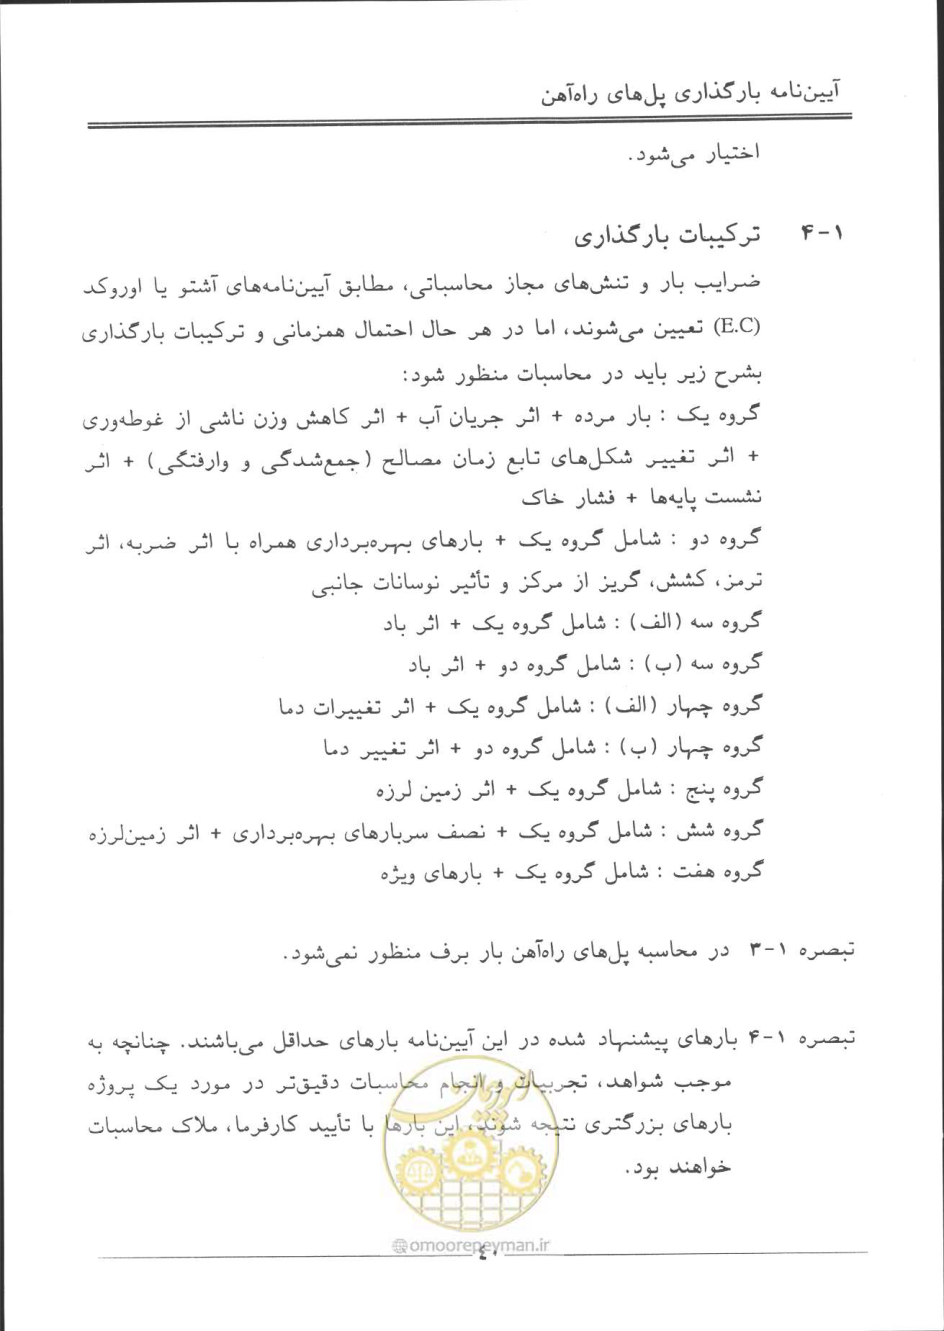 آیین‌نامه بارگذاری پل‌های راه‌آهن
اختیار می‌شود.
۴-۱ ترکیبات بارگذاری
ضرایب بار و تنش‌های مجاز محاسباتی، مطابق آیین‌نامه‌های آشتو یا اوروکد
(E.C) تعیین می‌شوند، اما در هر حال احتمال همزمانی و ترکیبات بارگذاری
بشرح زیر باید در محاسبات منظور شود:
گروه یک : بار مرده + اثر جریان آب + اثر کاهش وزن ناشی از غوطه‌وری
+ اثر تغییر شکل‌های تابع زمان مصالح (جمع‌شدگی و وارفتگی) + اثر
نشست پایه‌ها + فشار خاک
گروه دو : شامل گروه یک + بارهای بهره‌برداری همراه با اثر ضربه، اثر
ترمز، کشش، گریز از مرکز و تأثیر نوسانات جانبی
گروه سه (الف) : شامل گروه یک + اثر باد
گروه سه (ب) : شامل گروه دو + اثر باد
گروه چهار (الف) : شامل گروه یک + اثر تغییرات دما
گروه چهار (ب) : شامل گروه دو + اثر تغییر دما
گروه پنج : شامل گروه یک + اثر زمین لرزه
گروه شش : شامل گروه یک + نصف سربارهای بهره‌برداری + اثر زمین‌لرزه
گروه هفت : شامل گروه یک + بارهای ویژه
تبصره ۱-۳ در محاسبه پل‌های راه‌آهن بار برف منظور نمی‌شود.
تبصره ۱-۴ بارهای پیشنهاد شده در این آیین‌نامه بارهای حداقل می‌باشند. چنانچه به
موجب شواهد، تجربیات و انجام محاسبات دقیق‌تر در مورد یک پروژه
بارهای بزرگتری نتیجه شوند، این بارها با تأیید کارفرما، ملاک محاسبات
خواهند بود.
امور پیمان
@omoorepeyman.ir
۴۰